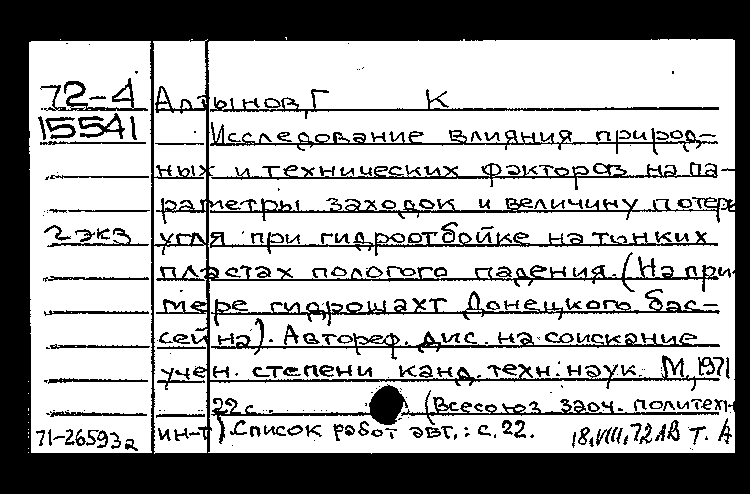 72-4 Алтынов, Г К
15541 Исследование влияния природ-
ных и технических факторов на па-
раметры заходок и величину потерь
2 экз угля при гидроотбойке на тонких
пластах пологого падения. (На при-
мере гидрошахт Донецкого бас-
сейна). Автореф. дис. на соискание
учен. степени канд. техн. наук. М., 1971
22 с. (Всесоюз. заоч. политехн
71-26593а ин-т). Список работ авт.: с. 22. 18.VIII.72 АВ Т. А